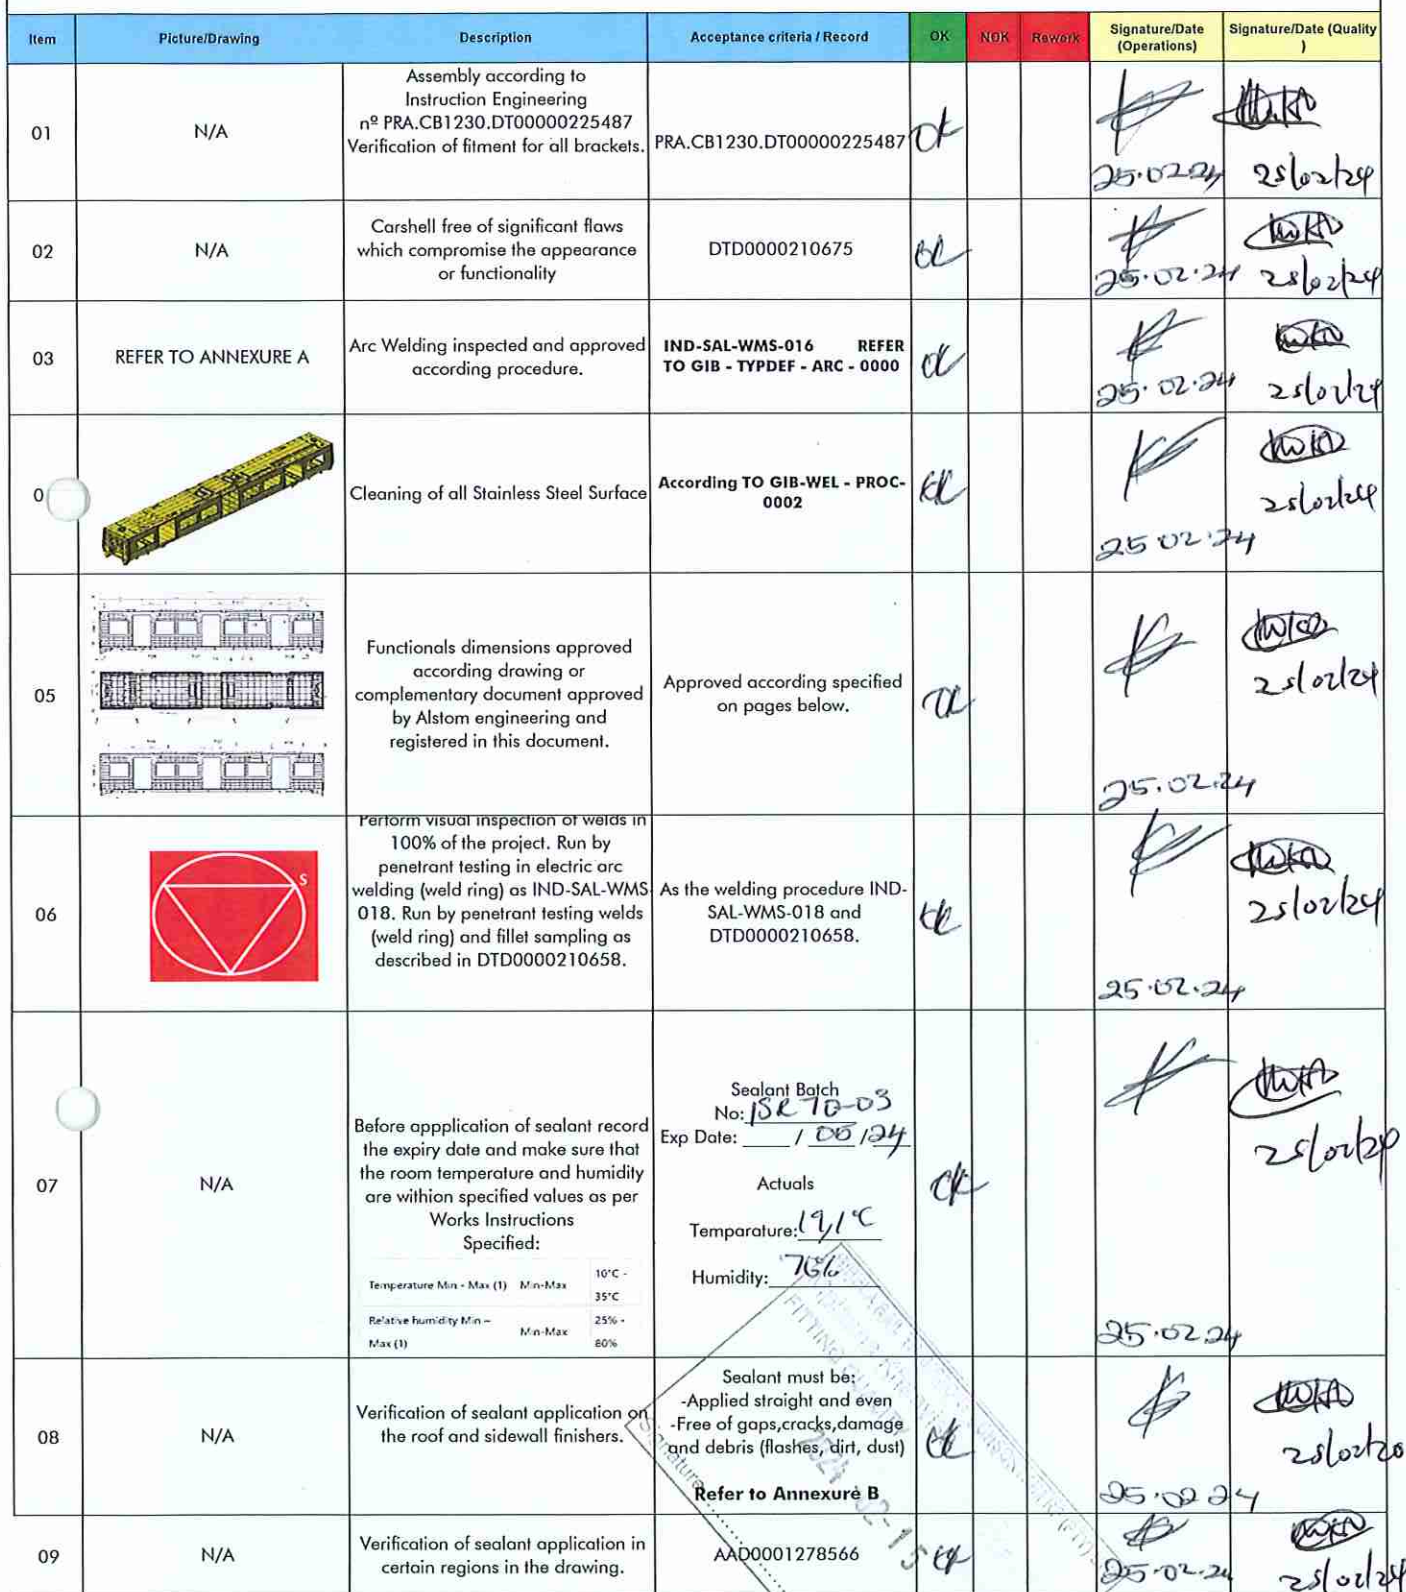 Item Picture/Drawing Description Acceptance criteria / Record OK NOK Rework Signature/Date (Operations) Signature/Date (Quality )
01
N/A
Assembly according to
Instruction Engineering
nº PRA.CB1230.DT00000225487
Verification of fitment for all brackets.
PRA.CB1230.DT00000225487
OK
25.02.24
25/02/24
02
N/A
Carshell free of significant flaws
which compromise the appearance
or functionality
DTD0000210675
OK
25.02.24
25/02/24
03
REFER TO ANNEXURE A
Arc Welding inspected and approved
according procedure.
IND-SAL-WMS-016 REFER
TO GIB - TYPDEF - ARC - 0000
OK
25.02.24
25/02/24
0
Cleaning of all Stainless Steel Surface
According TO GIB-WEL - PROC-
0002
OK
25.02.24
25/02/24
05
Functionals dimensions approved
according drawing or
complementary document approved
by Alstom engineering and
registered in this document.
Approved according specified
on pages below.
OK
25.02.24
25/02/24
06
S
Perform visual inspection of welds in
100% of the project. Run by
penetrant testing in electric arc
welding (weld ring) as IND-SAL-WMS-
018. Run by penetrant testing welds
(weld ring) and fillet sampling as
described in DTD0000210658.
As the welding procedure IND-
SAL-WMS-018 and
DTD0000210658.
OK
25.02.24
25/02/24
07
N/A
Before appplication of sealant record
the expiry date and make sure that
the room temperature and humidity
are withion specified values as per
Works Instructions
Specified:
Temperature Min - Max (1) Min-Max 10°C -
35°C
Relative humidity Min –
Max (1) Min-Max 25% -
80%
Sealant Batch
No: ISR 70-03
Exp Date: / /24
Actuals
Temparature: 19,1°C
Humidity:
OK
25.02.24
08
N/A
Verification of sealant application on
the roof and sidewall finishers.
Sealant must be:
-Applied straight and even
-Free of gaps,cracks,damage
and debris (flashes, dirt, dust)
Refer to Annexure B
OK
25.02.24
09
N/A
Verification of sealant application in
certain regions in the drawing.
AAD0001278566
OK
25.02.24
25/02/24
FITTING
Signature
2024-02-15